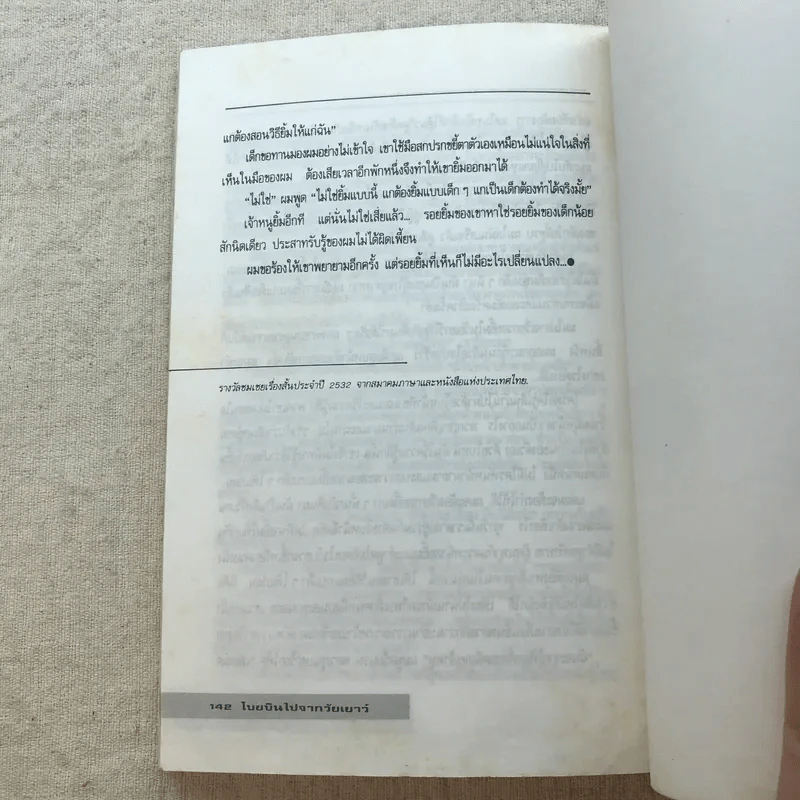 แกต้องสอนวิธียิ้มให้แก่ฉัน”
เด็กขอทานมองผมอย่างไม่เข้าใจ เขาใช้มือสกปรกขยี้ตาตัวเองเหมือนไม่แน่ใจในสิ่งที่
เห็นในมือของผม ต้องเสียเวลาอีกพักหนึ่งจึงทำให้เขายิ้มออกมาได้
“ไม่ใช่” ผมพูด “ไม่ใช่ยิ้มแบบนี้ แกต้องยิ้มแบบเด็ก ๆ แกเป็นเด็กต้องทำได้จริงมั้ย”
เจ้าหนูยิ้มอีกที แต่นั่นไม่ใช่เสียแล้ว... รอยยิ้มของเขาหาใช่รอยยิ้มของเด็กน้อย
สักนิดเดียว ประสาทรับรู้ของผมไม่ได้ผิดเพี้ยน
ผมขอร้องให้เขาพยายามอีกครั้ง แต่รอยยิ้มที่เห็นก็ไม่มีอะไรเปลี่ยนแปลง...●
รางวัลชมเชยเรื่องสั้นประจำปี 2532 จากสมาคมภาษาและหนังสือแห่งประเทศไทย.
142 โบยบินไปจากวัยเยาว์